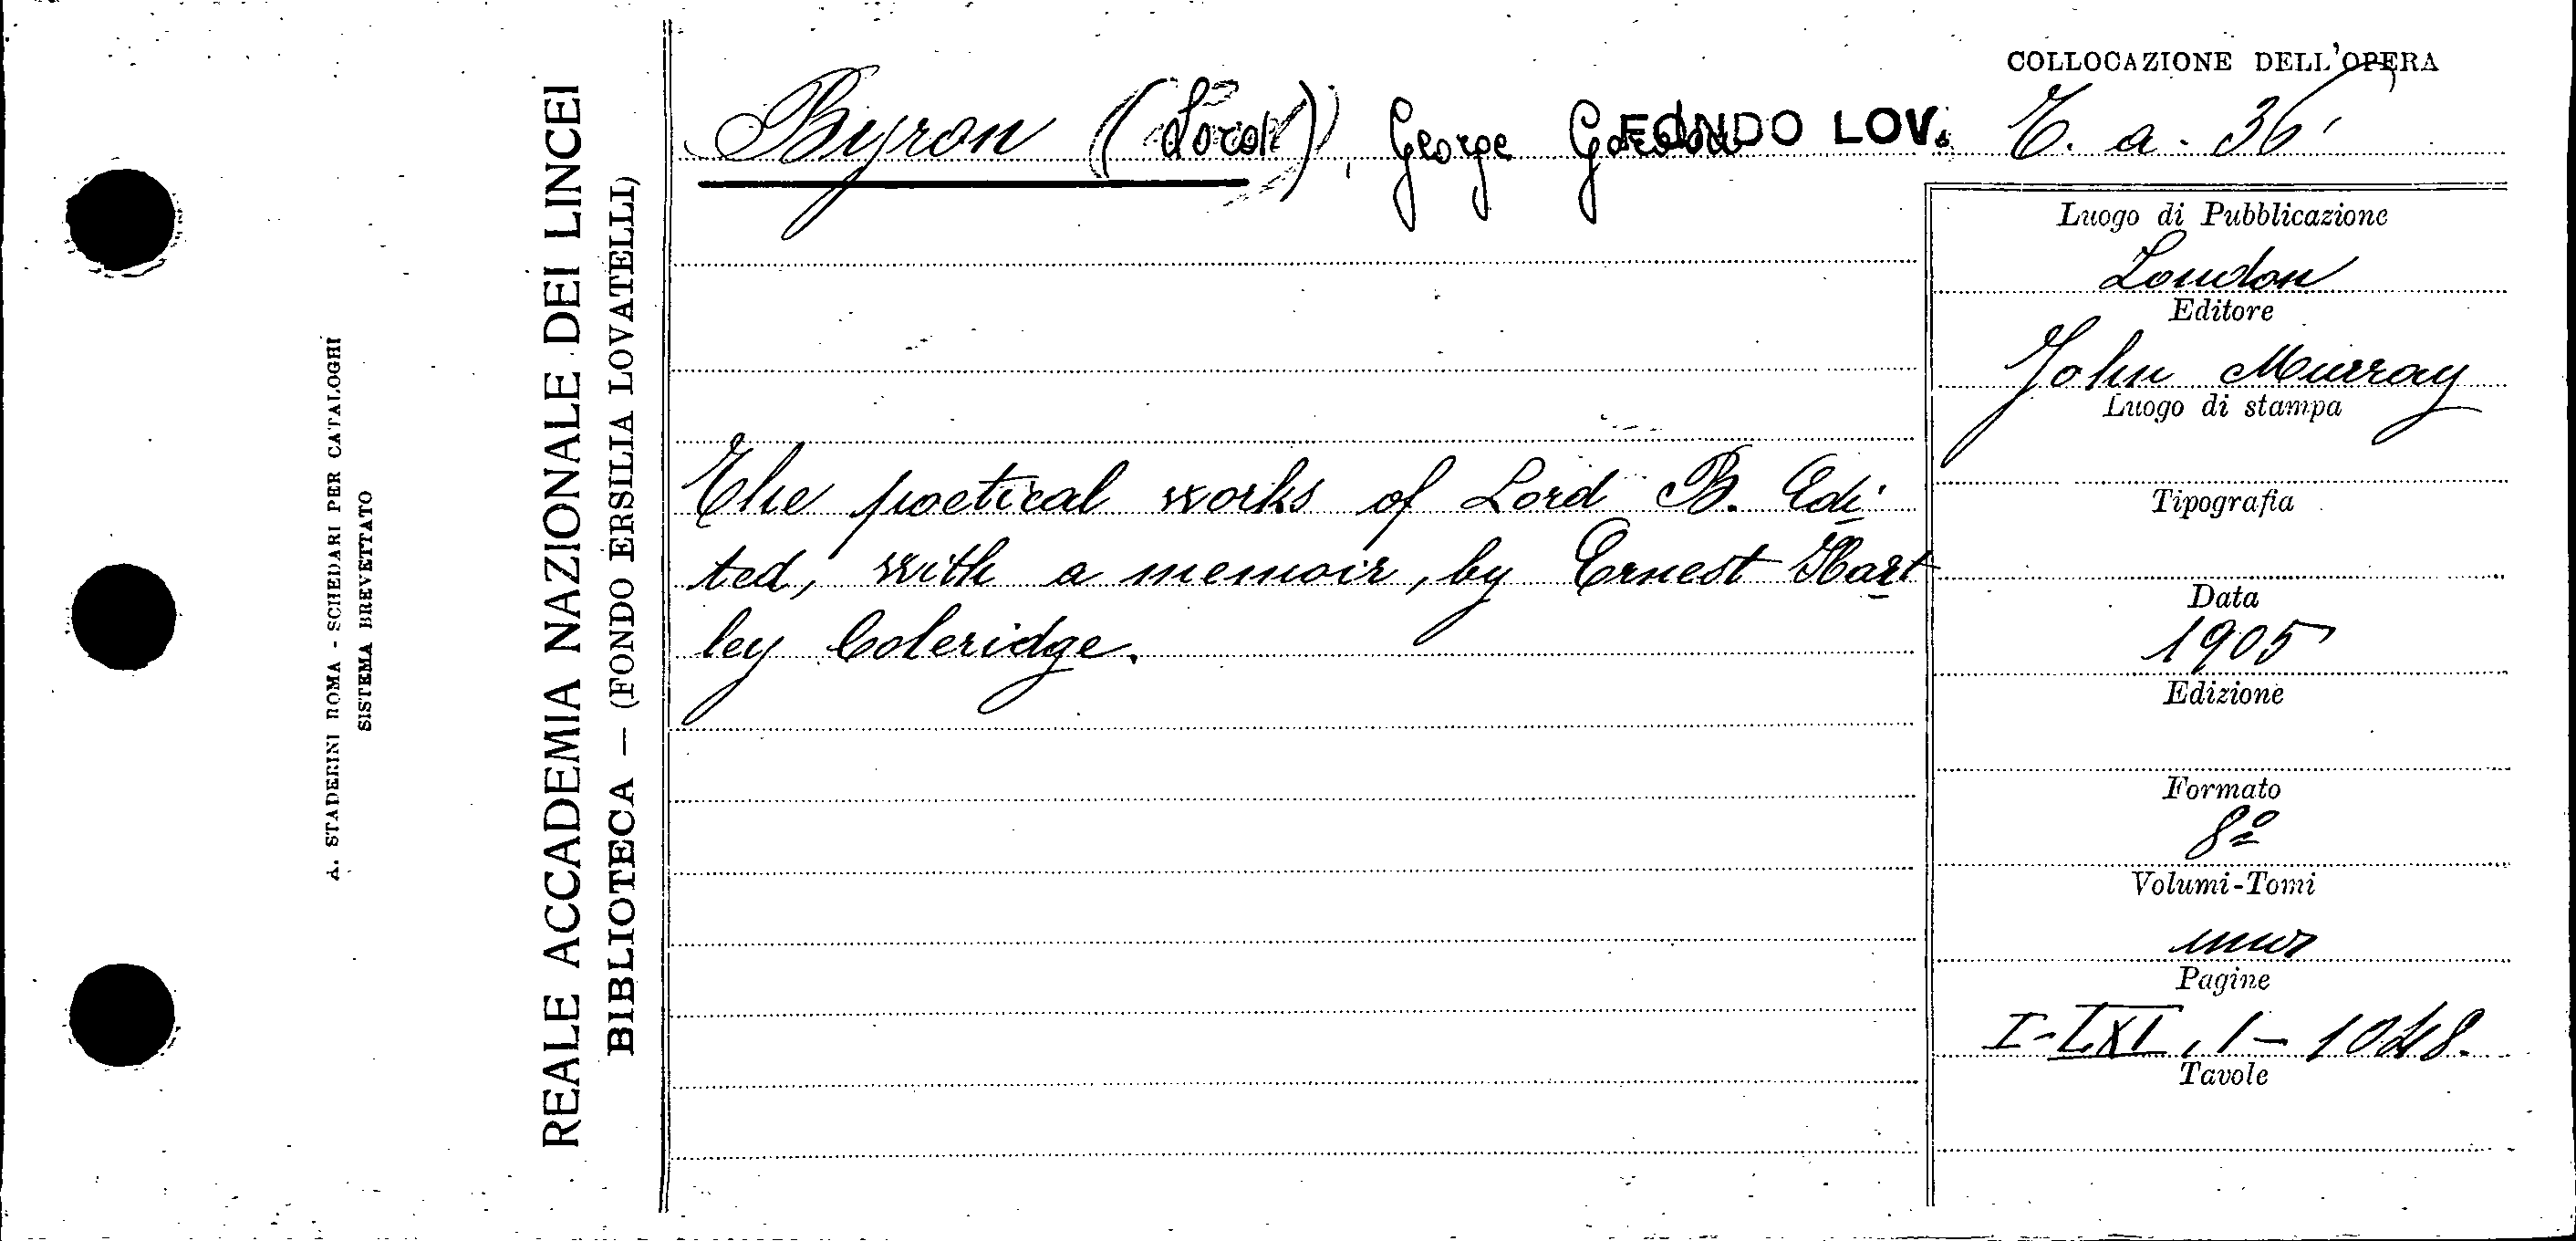 A. STADERINI ROMA - SCHEDARI PER CATALOGHI
SISTEMA BREVETTATO
REALE ACCADEMIA NAZIONALE DEI LINCEI
BIBLIOTECA — (FONDO ERSILIA LOVATELLI)
COLLOCAZIONE DELL'OPERA
Byron (Lord), George Gordon FONDO LOV. T. a. 36
The poetical works of Lord B. Edi-
ted, with a memoir, by Ernest Hart
ley Coleridge.
Luogo di Pubblicazione
London
Editore
John Murray
Luogo di stampa
Tipografia
Data
1905
Edizione
Formato
8º
Volumi-Tomi
uno
Pagine
I-LXXI, 1-1048.
Tavole